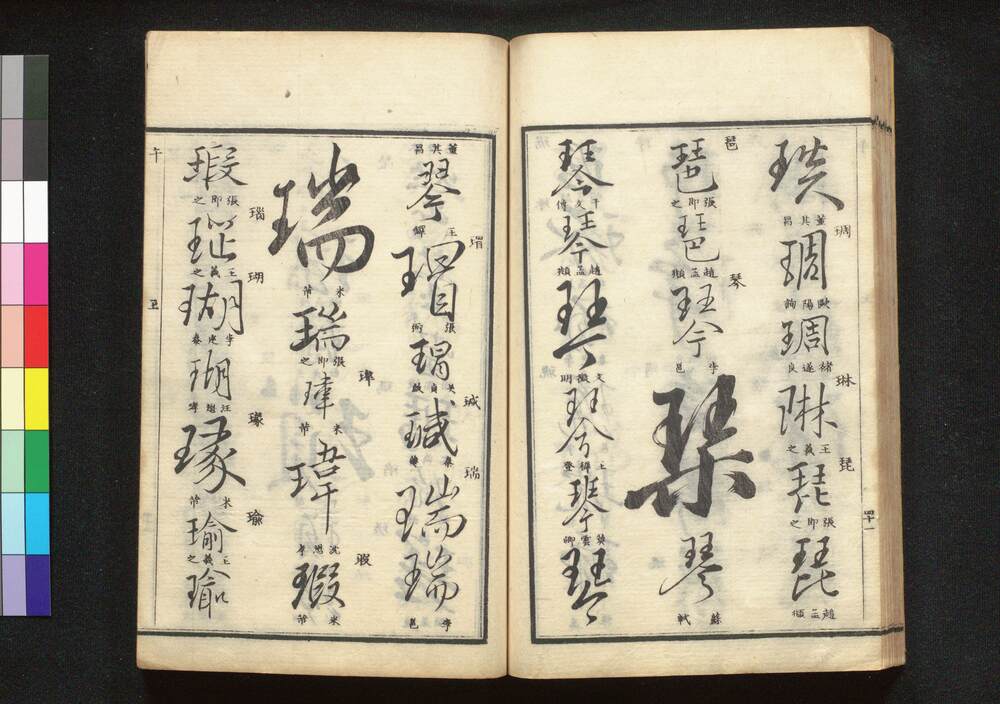 董其昌 琱 琱 歐陽詢 琱 褚遂良 琳 琳 王羲之 琵 琵 張即之 琵 趙孟頫
琶 琶 張即之 琶 趙孟頫 琴 琴 李邕 琴 琴 蘇軾
琴 干文傳 琴 趙孟頫 琴 文徵明 琴 王穉登 琴 莫雲卿 琴
四十一
董其昌 琴 王 瑁 瑁 張 瑁 吳 瑊 瑊 秦 瑞 瑞 瑞 李邕
瑞 米芾 瑞 張即之 瑋 瑋 米芾 瑋 沈 瑕 瑕 米芾
瑕 張即之 瑙 瑙 王羲之 瑚 瑚 李 瑚 汪 瑑 瑑 米芾 瑜 瑜 王羲之 瑜
午 玉